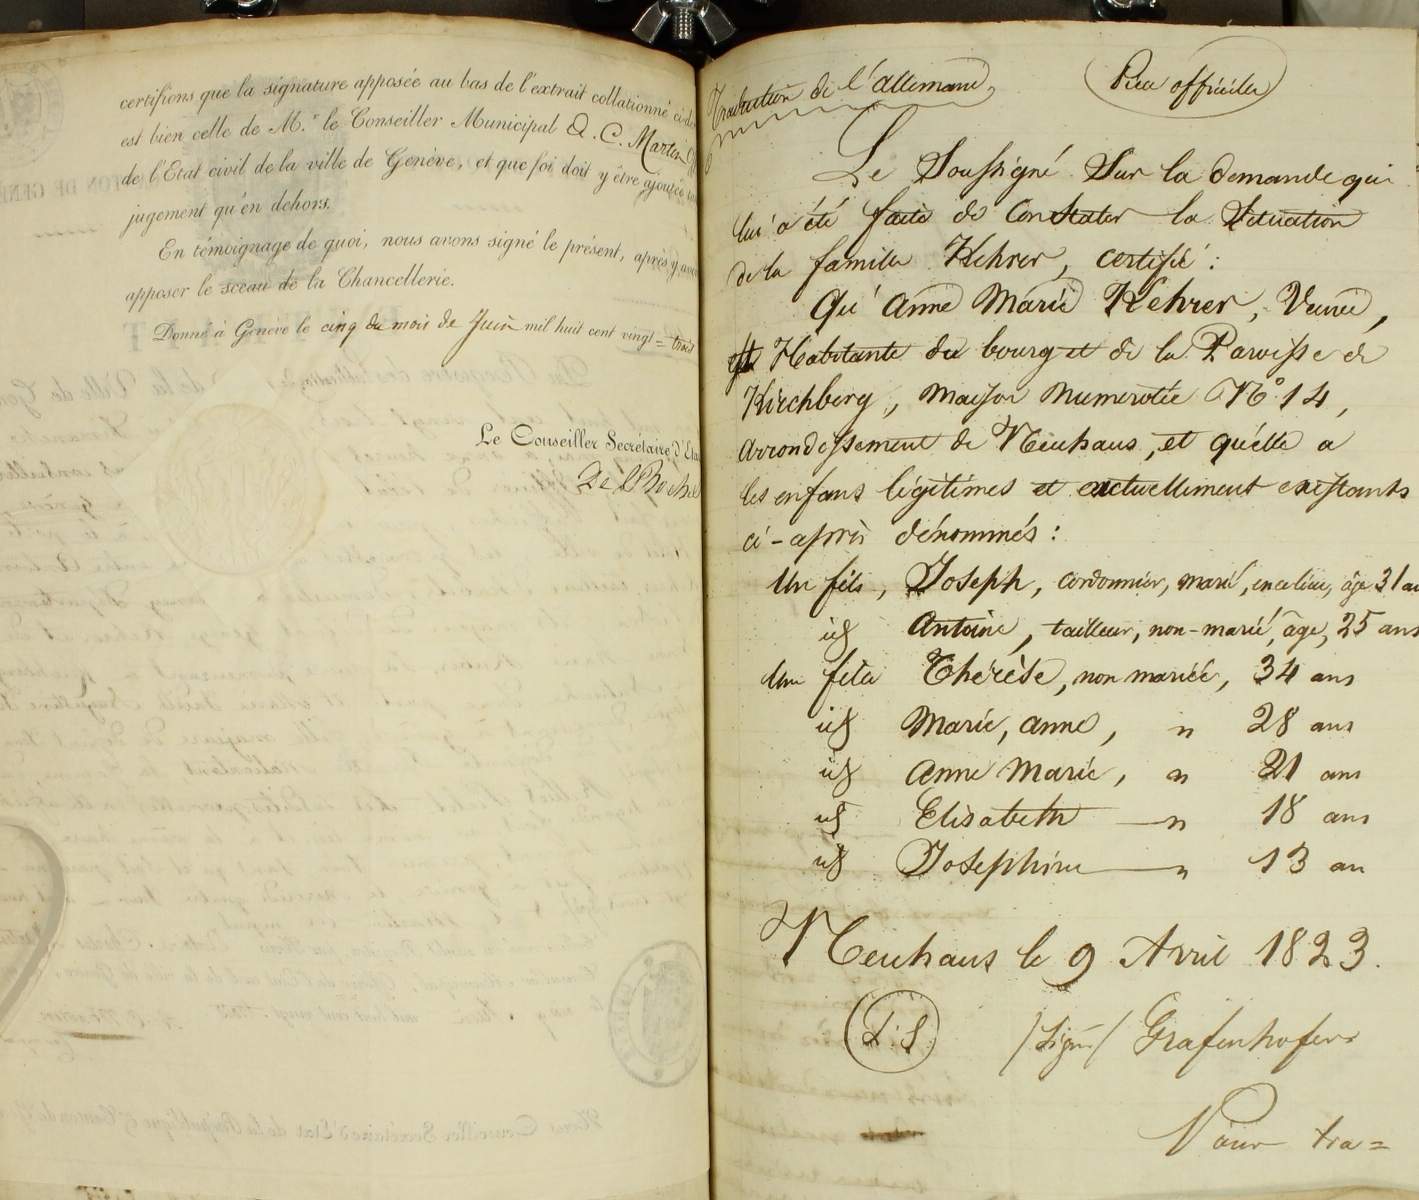 certifions que la signature apposée au bas de l'extrait collationné
est bien celle de M.r le Conseiller Municipal Q. C. Martin
de l'Etat civil de la ville de Genève, et que foi doit y être ajoutée
jugement qu'en dehors.
En témoignage de quoi, nous avons signé le présent, après y
apposer le sceau de la Chancellerie.
Donné à Genève le cinq du mois de Juin mil huit cent vingt = trois
Le Conseiller Secrétaire d'Etat
Traduction de l'allemand,
Pièce officielle
Le Soussigné Sur la demande qui
lui a été faite de Constater la Situation
de la famille Kehrer, certifie :
Qu'Anne Marie Kehrer, Veuve,
Habitante du bourg et de la Paroisse de
Kirchberg, maison Numerotée N° 14,
arrondissement de Neuhaus, et qu'elle a
les enfans légitimes et actuellement existants
ci-après dénommés :
Un fils, Joseph, cordonnier, marié, en ce lieu, âge 31 ans
id Antoine, tailleur, non-marié, âge, 25 ans
Une fille Thérèse, non mariée, 34 ans
id Marie, Anne, " 28 ans
id Anne Marie, " 21 ans
id Elisabeth — " 18 ans
id Josephine — " 13 an
Neuhaus le 9 Avril 1823.
L.S.
/Signé/ Grafenhofer
Pour tra=